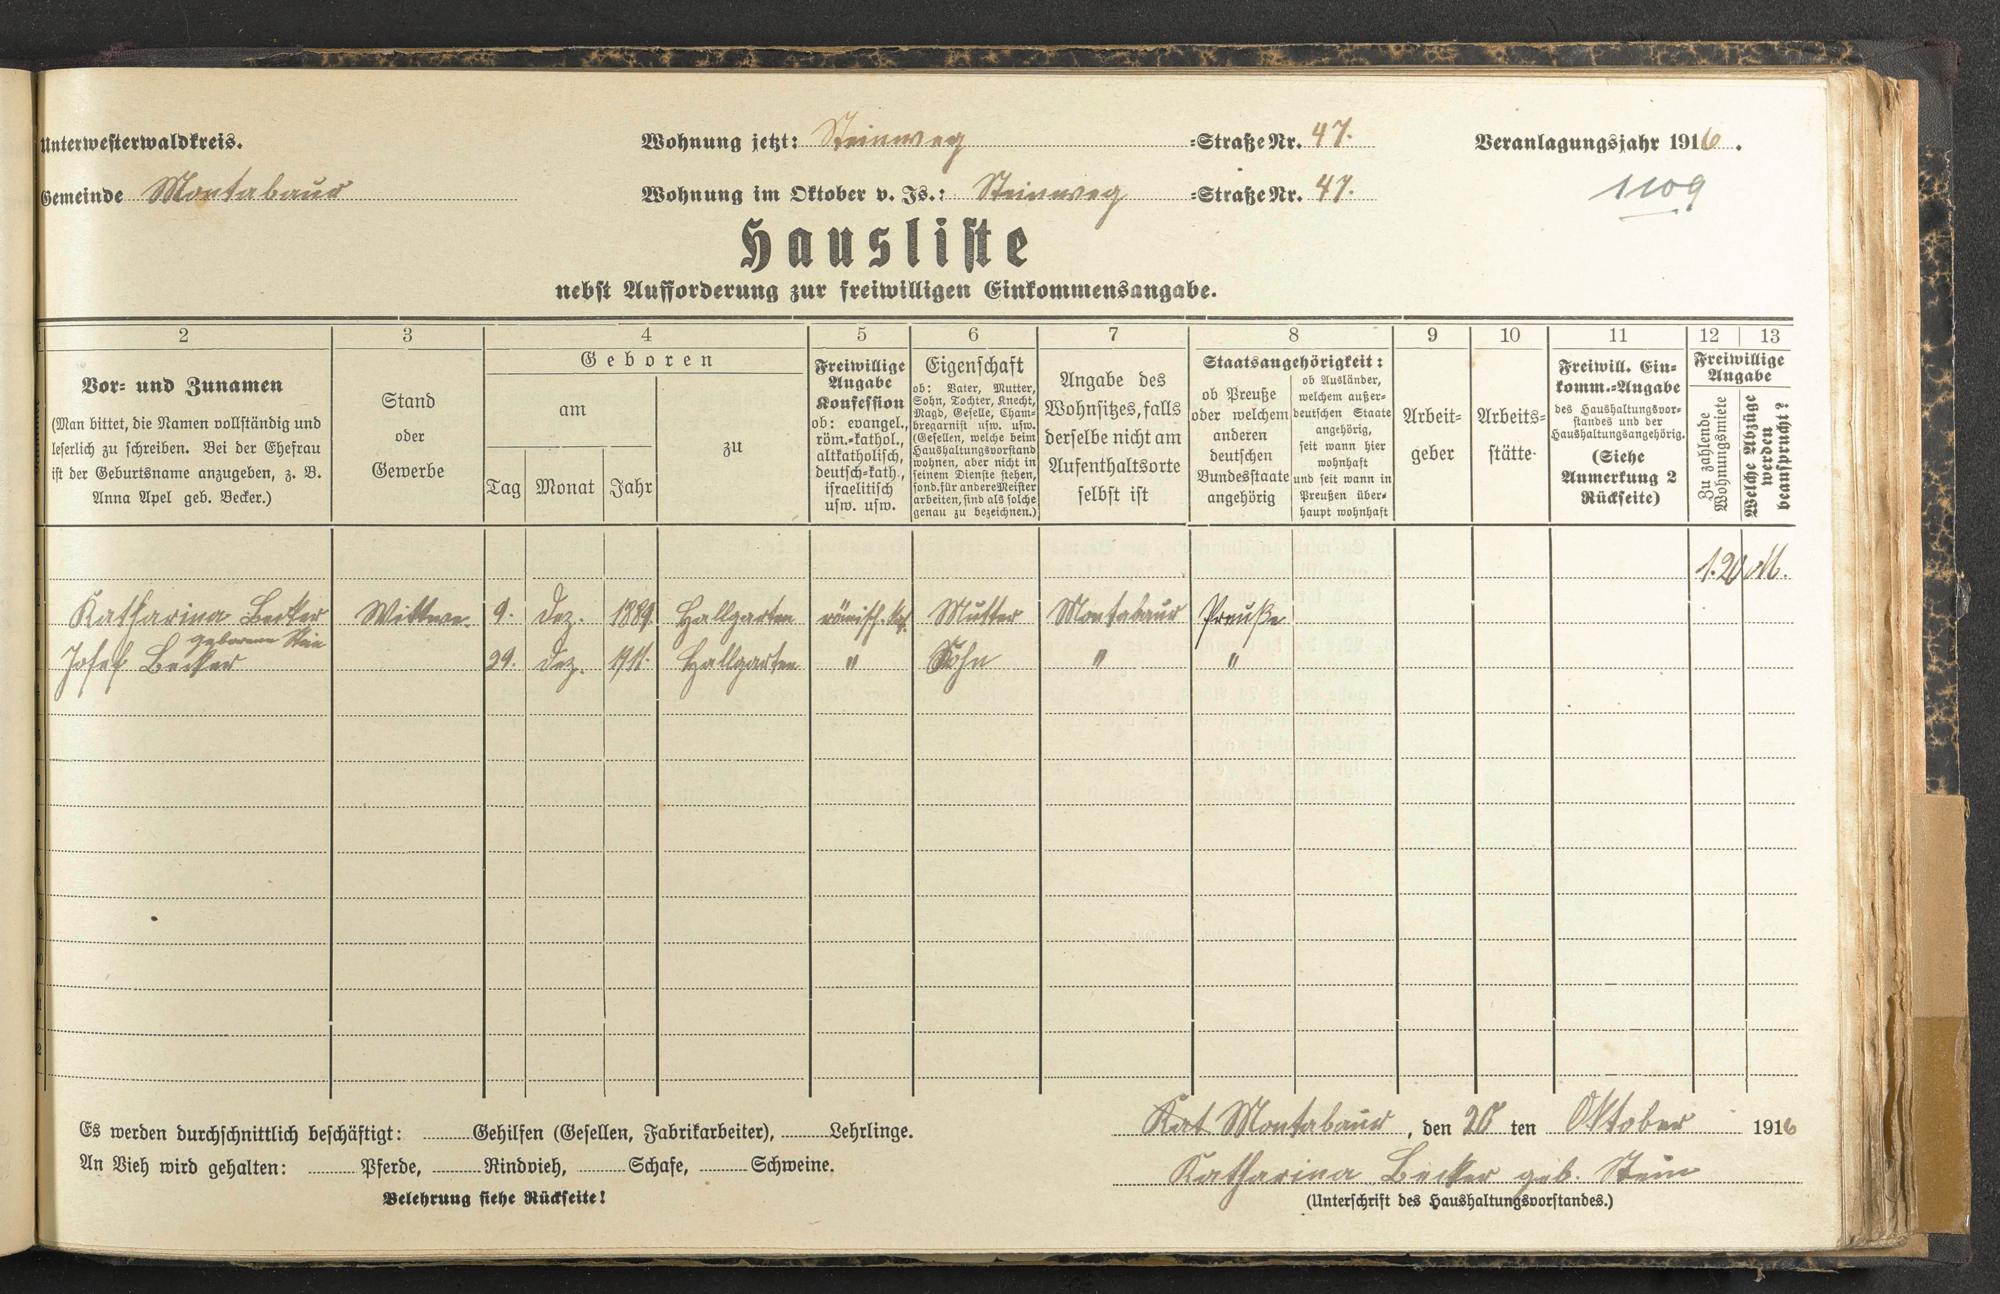 Unterwesterwaldkreis.
Wohnung jetzt: Steinweg =Straße Nr. 47.
Veranlagungsjahr 1916.
Gemeinde Montabaur
Wohnung im Oktober v. Js.: Steinweg =Straße Nr. 47.
1109
Hausliste
nebst Aufforderung zur freiwilligen Einkommensangabe.
2 3 4 5 6 7 8 9 10 11 12 13
Vor- und Zunamen
(Man bittet, die Namen vollständig und
leserlich zu schreiben. Bei der Ehefrau
ist der Geburtsname anzugeben, z. B.
Anna Apel geb. Becker.)
Stand
oder
Gewerbe
Geboren
am
Tag Monat Jahr
zu
Freiwillige
Angabe
Konfession
ob: evangel.,
röm.=kathol.,
altkatholisch,
deutsch=kath.,
israelitisch
usw. usw.
Eigenschaft
ob: Vater, Mutter,
Sohn, Tochter, Knecht,
Magd, Geselle, Cham-
bregarnist usw. usw.
(Gesellen, welche beim
Haushaltungsvorstand
wohnen, aber nicht in
seinem Dienste stehen,
sond. für andere Meister
arbeiten, sind als solche
genau zu bezeichnen.)
Angabe des
Wohnsitzes, falls
derselbe nicht am
Aufenthaltsorte
selbst ist
Staatsangehörigkeit:
ob Preuße
oder welchem
anderen
deutschen
Bundesstaate
angehörig
ob Ausländer,
welchem außer-
deutschen Staate
angehörig,
seit wann hier
wohnhaft
und seit wann in
Preußen über-
haupt wohnhaft
Arbeit-
geber
Arbeits-
stätte
Freiwill. Ein-
komm.=Angabe
des Haushaltungsvor-
standes und der
Haushaltungsangehörig.
(Siehe
Anmerkung 2
Rückseite)
Freiwillige
Angabe
Zu zahlende
Wohnungsmiete
Welche Abzüge
werden
beansprucht?
120 M.
Katharina Becker Wittwe. 9. Dez. 1889 Hallgarten römisch. kat. Mutter Montabaur Preuße
geborene Stein
Josef Becker 29. Dez. 1911. Hallgarten " Sohn " "
Es werden durchschnittlich beschäftigt: Gehilfen (Gesellen, Fabrikarbeiter), Lehrlinge.
Kat Montabaur, den 20 ten Oktober 1916
An Vieh wird gehalten: Pferde, Rindvieh, Schafe, Schweine.
Katharina Becker geb. Stein
Belehrung siehe Rückseite!
(Unterschrift des Haushaltungsvorstandes.)